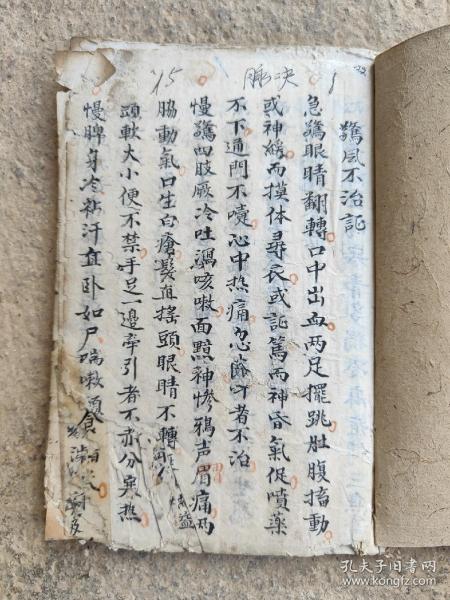 脉決
15
驚風不治訖
急驚眼睛翻轉口中出血兩足擺跳肚腹搐動
或神緩而摸体尋衣或訖篤而神昏氣促噴藥
不下通門不嚏心中热痛忽 者不治
慢驚四肢厥冷吐瀉咳嗽面黯神慘鴉声眉痛兩
脇動氣口生白瘡髮直搖頭眼睛不轉
頭軟大小便不禁手足一邊牽引者不 分異热
慢脾身冷粘汗直卧如尸喘嗽頭
孔夫子旧书网
www.kongfz.com